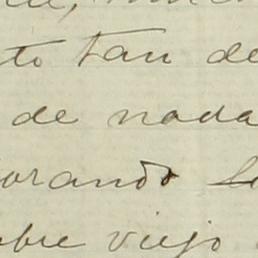 to tan de
de nada
orando
bre viejo